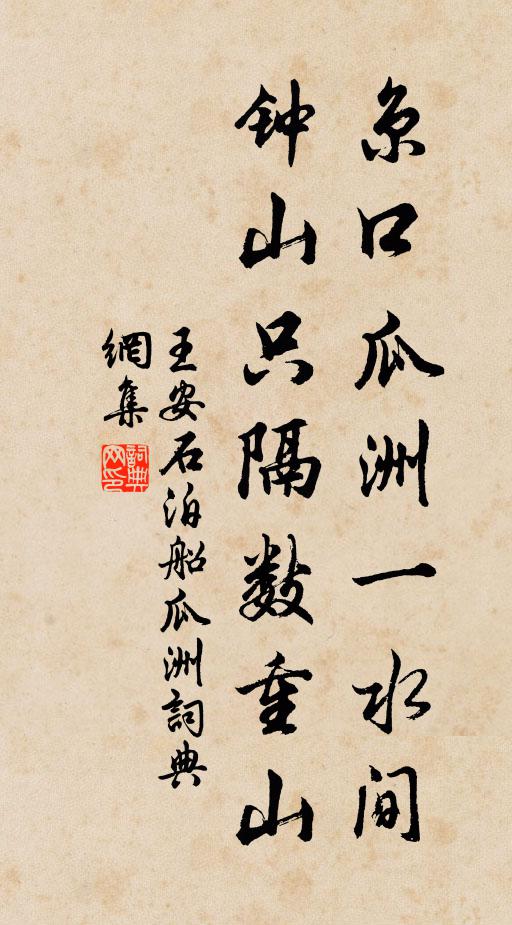 京口瓜洲一水间
钟山只隔数重山
王安石泊船瓜洲詞典
網集
詞典
网印